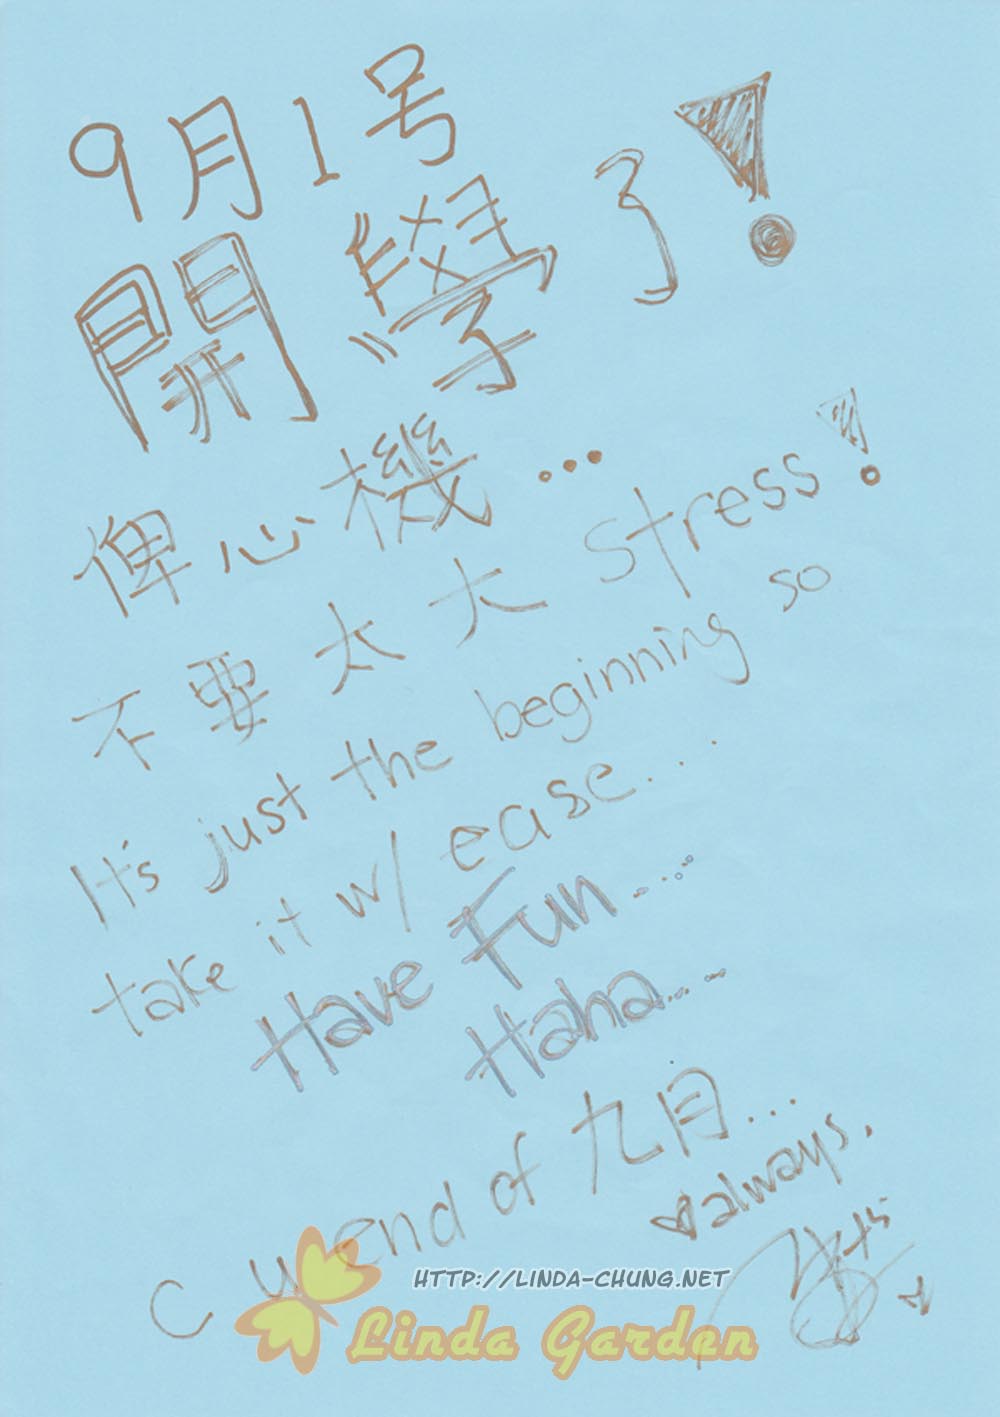 9月1号
開學了!
俾心機...
不要太大 stress!
It's just the beginning so
take it w/ ease...
Have Fun....
Haha.....
c u end of 九月...
always,
HTTP://LINDA-CHUNG.NET
Linda Garden